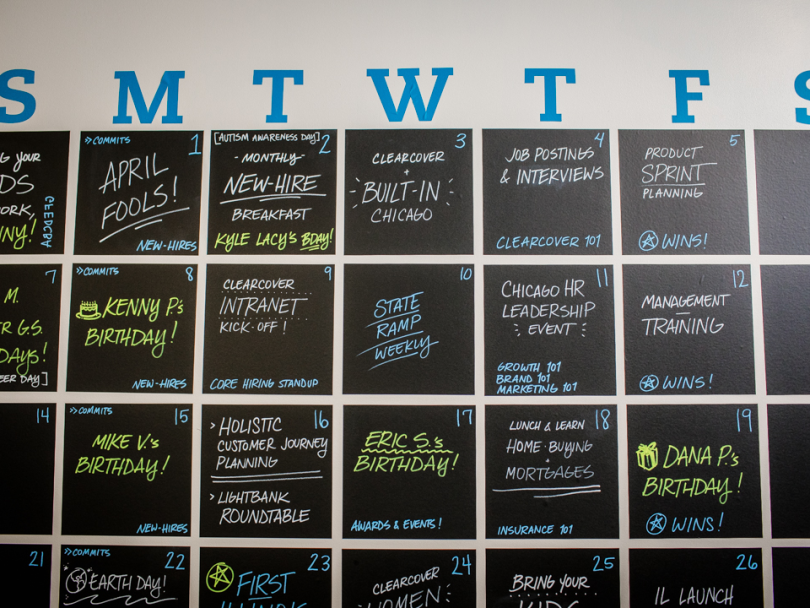 S M T W T F S
G YOUR
DS
ORK,
NY!
@FEDCBA
>>COMMITS 1
APRIL
FOOLS!
NEW-HIRES
[AUTISM AWARENESS DAY]
2
-MONTHLY-
NEW-HIRE
BREAKFAST
KYLE LACY'S BDAY!
3
CLEARCOVER
+
BUILT-IN
CHICAGO
4
JOB POSTINGS
& INTERVIEWS
CLEARCOVER 101
5
PRODUCT
SPRINT
PLANNING
WINS!
7
M.
R G.S.
DAYS!
EER DAY]
>>COMMITS 8
KENNY P.'s
BIRTHDAY!
NEW-HIRES
9
CLEARCOVER
INTRANET
KICK-OFF!
CORE HIRING STANDUP
10
STATE
RAMP
WEEKLY
11
CHICAGO HR
LEADERSHIP
EVENT
GROWTH 101
BRAND 101
MARKETING 101
12
MANAGEMENT
TRAINING
WINS!
14
>>COMMITS 15
MIKE V.'s
BIRTHDAY!
NEW-HIRES
16
> HOLISTIC
CUSTOMER JOURNEY
PLANNING
> LIGHTBANK
ROUNDTABLE
17
ERIC S.'s
BIRTHDAY!
AWARDS & EVENTS!
18
LUNCH & LEARN
HOME-BUYING
+
MORTGAGES
INSURANCE 101
19
DANA P.'s
BIRTHDAY!
WINS!
21
>>COMMITS 22
EARTH DAY!
23
FIRST
24
CLEARCOVER
WOMEN
25
BRING YOUR
KIDS
26
IL LAUNCH